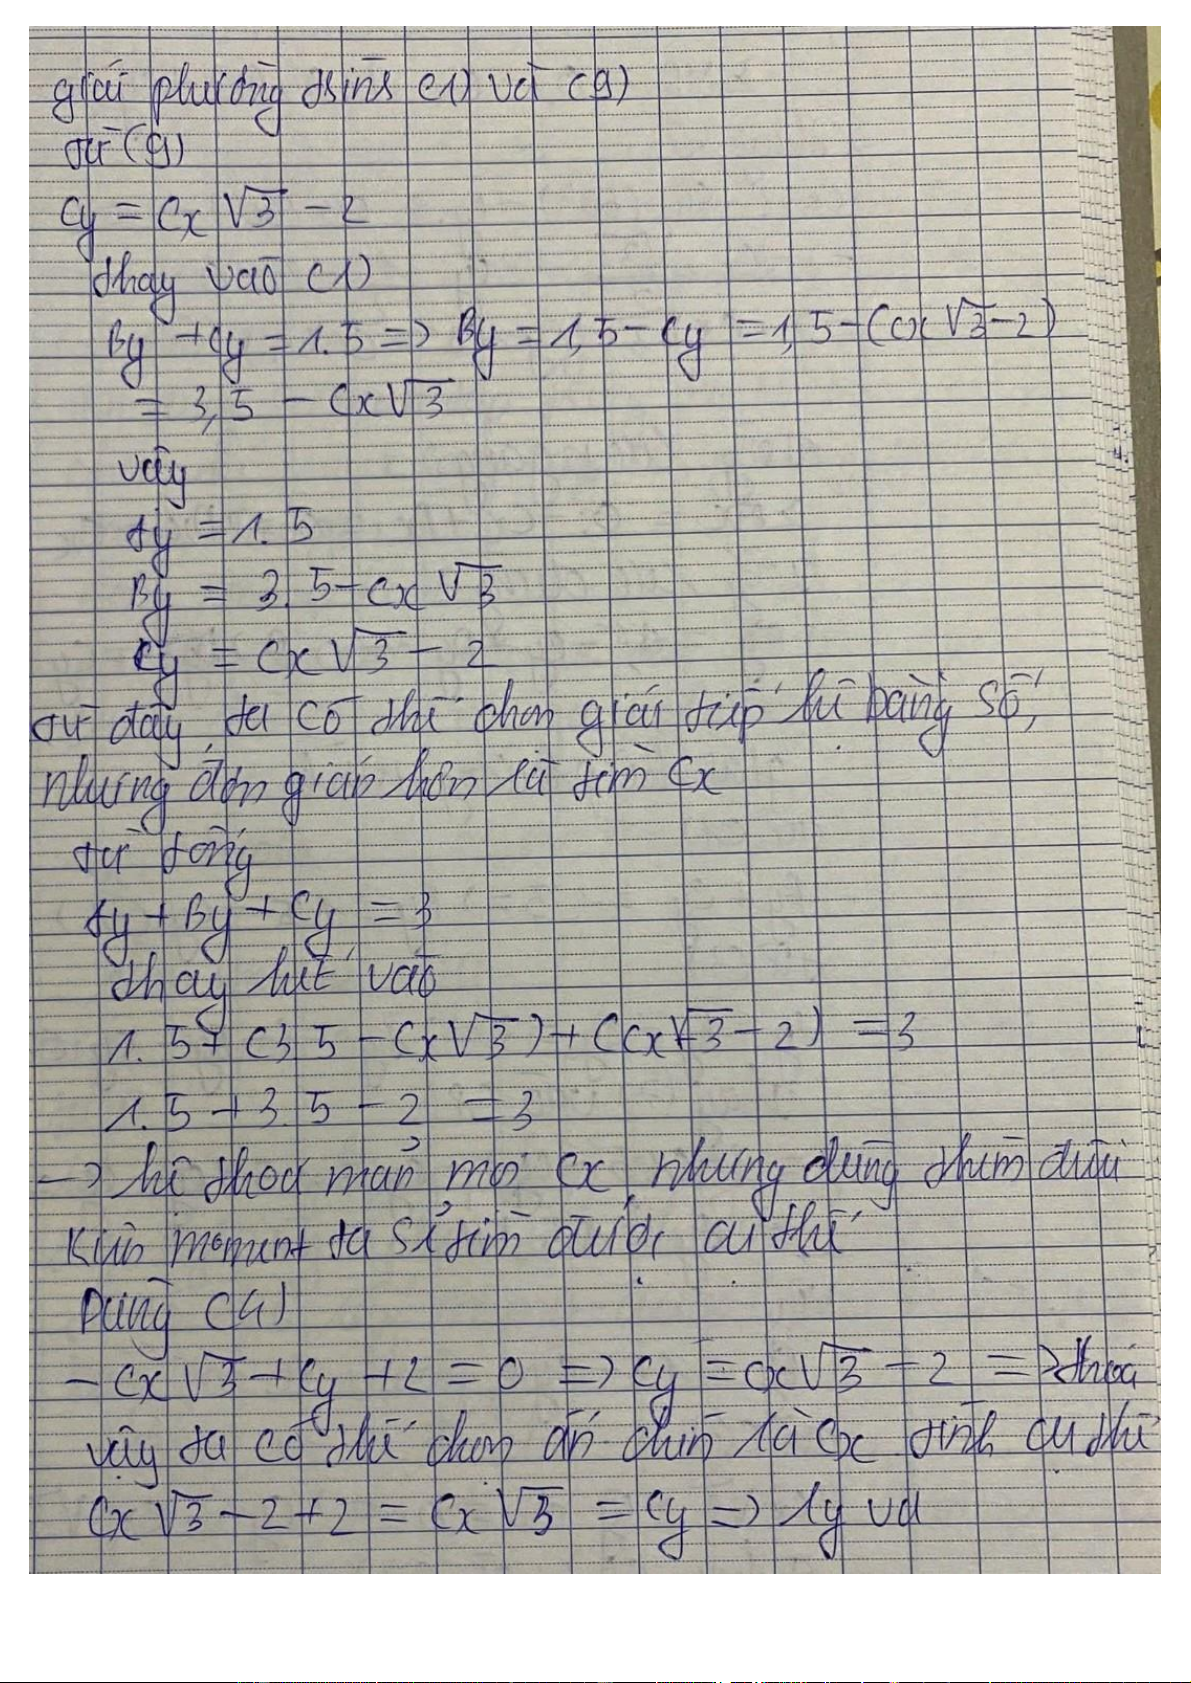 giải phương trình (1) và (9)
từ (9)
Cy = Cx √3 - 2
thay vào (1)
By + Cy = 1.5 => By = 1,5 - Cy = 1,5 - (Cx √3 - 2)
= 3,5 - Cx √3
vậy
Ay = 1.5
By = 3.5 - Cx √3
Cy = Cx √3 - 2
từ đây, ta có thể chọn giải tiếp hệ bằng số,
nhưng đơn giản hơn là tìm Cx
từ tổng
Ay + By + Cy = 3
thay hết vào
1.5 + (3.5 - Cx √3) + (Cx √3 - 2) = 3
1.5 + 3.5 - 2 = 3
-> hệ thoả mãn mọi Cx, nhưng dùng thêm điều
kiện moment ta sẽ tìm được cụ thể
Dùng (4)
- Cx √3 + Cy + 2 = 0 => Cy = Cx √3 - 2 => thoả
vậy ta có thể chọn ẩn chính là Cx tính cụ thể
Cx √3 - 2 + 2 = Cx √3 = Cy =>